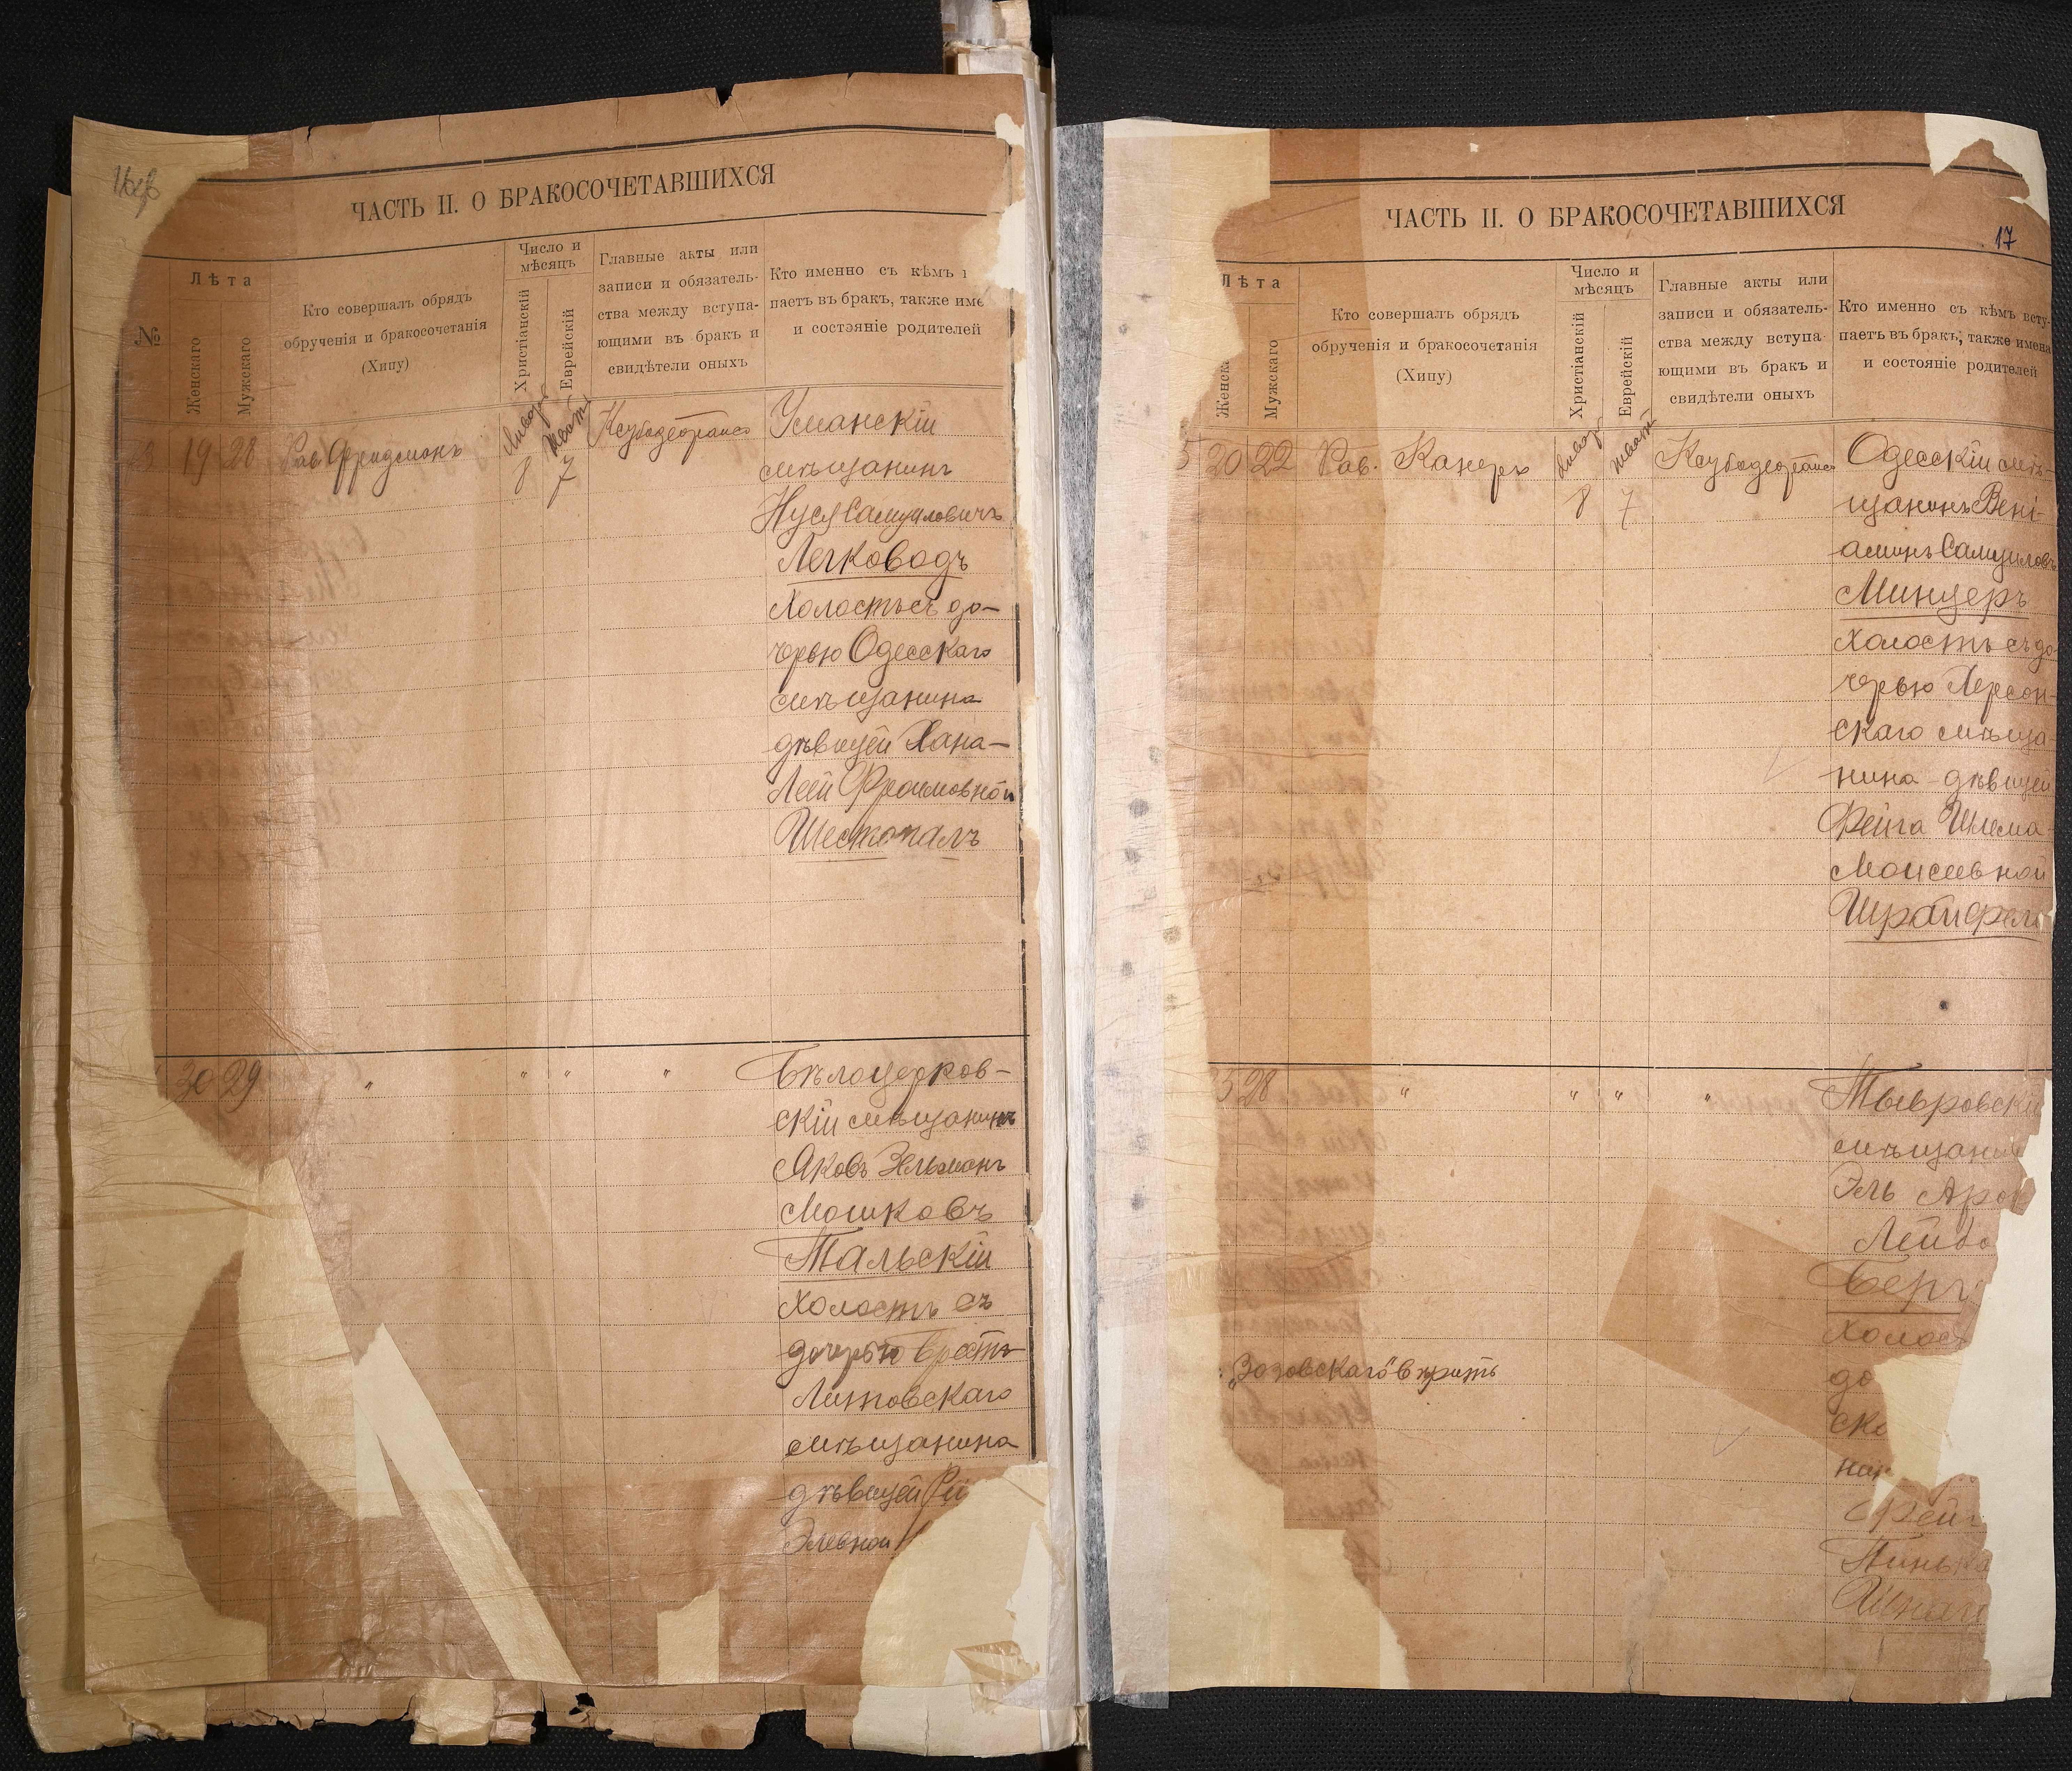 ЧАСТЬ II. О БРАКОСОЧЕТАВШИХСЯ
№
Лѣта
Женскаго
Мужскаго
Кто совершалъ обрядъ
обрученія и бракосочетанія
(Хипу)
Число и
мѣсяцъ
Христіанскій
Еврейскій
Главные акты или
записи и обязатель-
ства между вступа-
ющими въ бракъ и
свидѣтели оныхъ
Кто именно съ кѣмъ
паетъ въ бракъ, также име
и состояніе родителей
19 28 Рав. Фридманъ
8 7
Уманскій
мѣщанинъ
Нуся Самуиловичъ
Легководъ
Холостъ съ до-
черью Одесскаго
мѣщанина
дѣвицей Хана-
Леей Фроимовной
Шестопалъ
30 29 " " " "
Бѣлоцерков-
скій мѣщанинъ
Яковъ Зельманъ
Мошковъ
Тальскій
холостъ съ
дочерью Брестъ-
Литовскаго
мѣщанина
дѣвицей
Элевной
ЧАСТЬ II. О БРАКОСОЧЕТАВШИХСЯ
17
Лѣта
Женска
Мужскаго
Кто совершалъ обрядъ
обрученія и бракосочетанія
(Хипу)
Число и
мѣсяцъ
Христіанскій
Еврейскій
Главные акты или
записи и обязатель-
ства между вступа-
ющими въ бракъ и
свидѣтели оныхъ
Кто именно съ кѣмъ всту-
паетъ въ бракъ, также имена
и состояніе родителей
5 20 22 Рав. Канеръ
8 7
Одесскій мѣ-
щанинъ Вені-
аминъ Самуиловъ
Минцеръ
холостъ съ до-
черью Херсон-
скаго мѣща-
нина дѣвицей
Фейга Шлема-
Моисеевной
25 28 " " " "
Тывровскій
мѣщанинъ
Эль Аро
Лейбо
Берг
холост
до
ско
нин
Фейг
Пинька